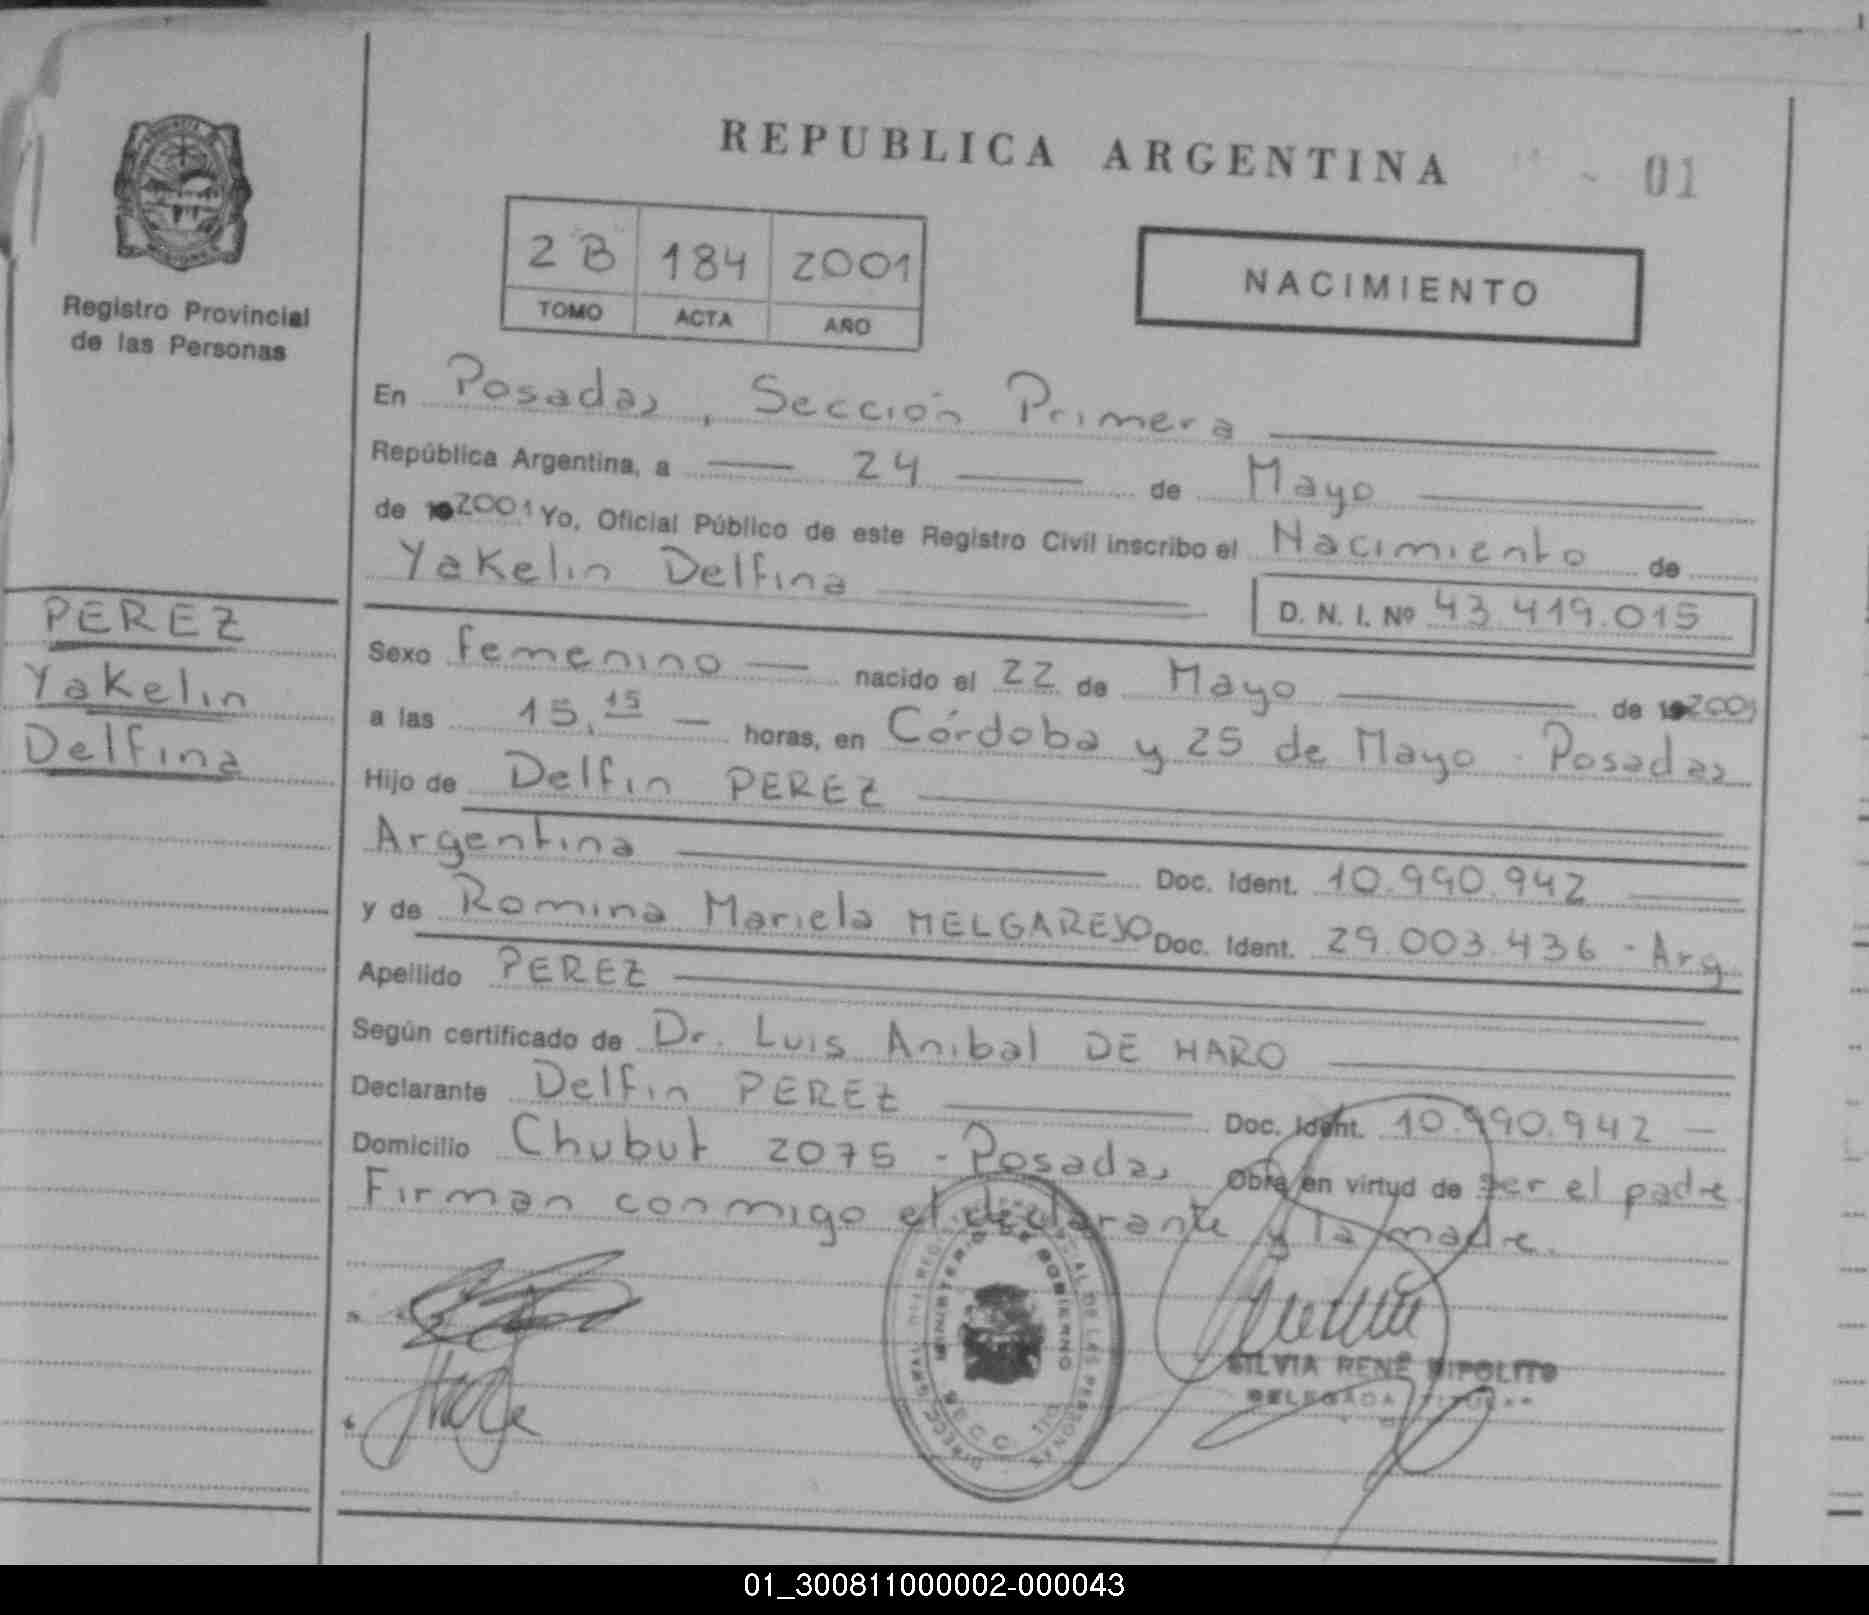 REPUBLICA ARGENTINA
- 01
2 B 184 2001
TOMO ACTA AÑO
NACIMIENTO
Registro Provincial
de las Personas
En Posadas, Sección Primera
República Argentina, a 24 de Mayo
de 2001 Yo, Oficial Público de este Registro Civil inscribo el Nacimiento de
Yakelin Delfina
D. N. I. Nº 43.419.015
PEREZ
Yakelin
Delfina
Sexo Femenino nacido el 22 de Mayo de 2001
a las 15,15 horas, en Córdoba y 25 de Mayo - Posadas
Hijo de Delfin PEREZ
Argentina Doc. Ident. 10.990.942
y de Romina Mariela MELGAREJO Doc. Ident. 29.003.436 - Arg
Apellido PEREZ
Según certificado de Dr. Luis Anibal DE HARO
Declarante Delfin PEREZ Doc. Ident. 10.990.942
Domicilio Chubut 2075 - Posadas Obra en virtud de ser el padre
Firman conmigo el declarante y la madre.
MINISTERIO DE GOBIERNO
SILVIA RENÉ HIPOLITO
DELEGADA TITULAR
01_300811000002-000043